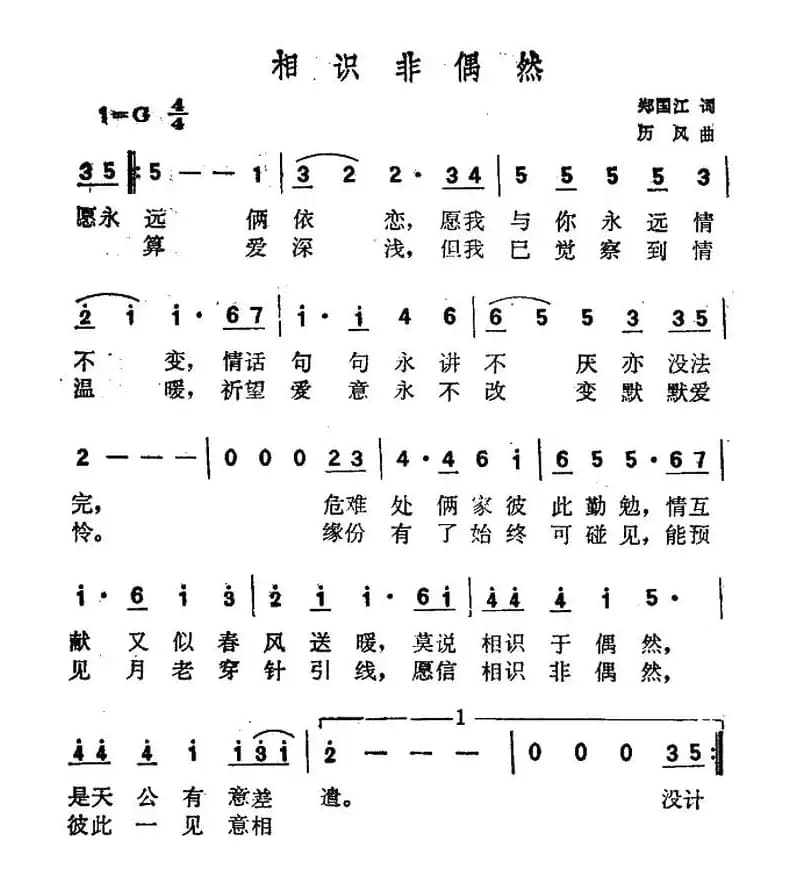 相识非偶然
1=G 4/4
郑国江 词
历风 曲
3 5 5 — — 1 3 2 2 · 3 4 5 5 5 5 3
愿永远 俩依 恋,愿我与你永远情
算 爱深 浅,但我已觉察到情
2 i i · 6 7 i · i 4 6 6 5 5 3 3 5
不 变,情话句 句永讲不 厌亦没法
温 暖,祈望爱 意永不改 变默默爱
2 — — — 0 0 0 2 3 4 · 4 6 i 6 5 5 · 6 7
完, 危难处 俩家彼此勤勉,情互
怜。 缘份有 了始终可碰见,能预
i · 6 i 3 2 i i · 6 i 4 4 4 i 5 ·
献 又似春风送暖,莫说相识于偶然,
见 月老穿针引线,愿信相识非偶然,
1
4 4 4 i i 3 i 2 — — — 0 0 0 3 5
是天公有意差 遣。 没计
彼此一见意相